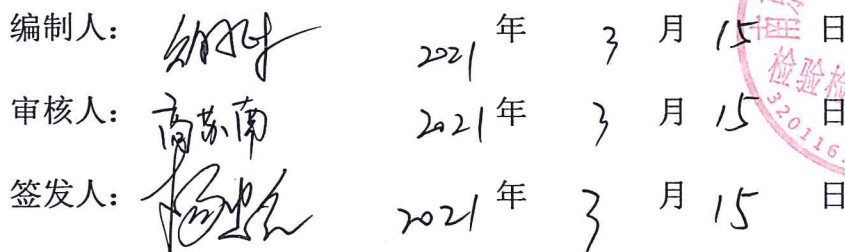 编制人： 2021 年 3 月 15 日
审核人： 高苏南 2021 年 3 月 15 日
签发人： 2021 年 3 月 15 日
检验检
3201163